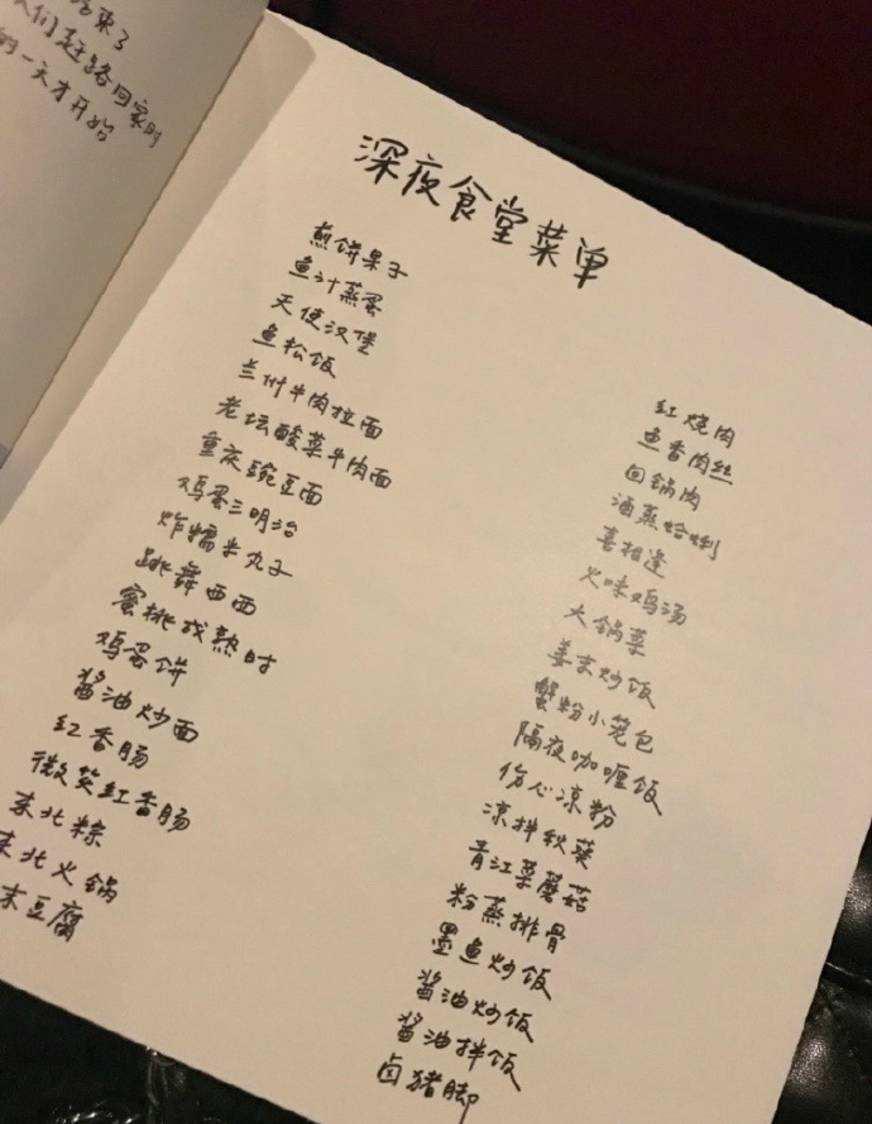 来了
人们赶路回家时
的一天才开始
深夜食堂菜单
煎饼果子
鱼汁蒸蛋
天使汉堡
鱼松饭
兰州牛肉拉面
老坛酸菜牛肉面
重庆豌豆面
鸡蛋三明治
炸糯米丸子
跳舞西西
蜜桃成熟时
鸡蛋饼
酱油炒面
红香肠
微笑红香肠
东北粽
东北火锅
末豆腐
红烧肉
鱼香肉丝
回锅肉
酒蒸蛤蜊
喜相逢
火味鸡汤
大锅菜
姜末炒饭
蟹粉小笼包
隔夜咖喱饭
伤心凉粉
凉拌秋葵
青江菜蘑菇
粉蒸排骨
墨鱼炒饭
酱油炒饭
酱油拌饭
卤猪脚